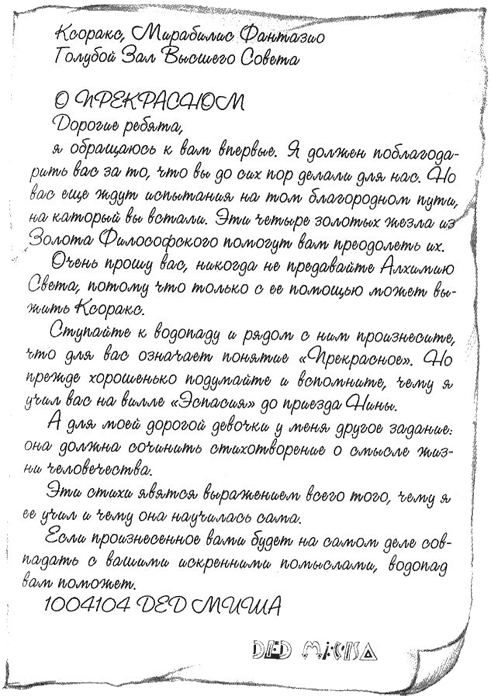 Ксоракс, Мирабилис Фантазио
Голубой Зал Высшего Совета
О ПРЕКРАСНОМ
Дорогие ребята,
я обращаюсь к вам впервые. Я должен поблагода-
рить вас за то, что вы до сих пор делали для нас. Но
вас еще ждут испытания на том благородном пути,
на каторый вы встали. Эти четыре золотых жезла из
Золота Философского помогут вам преодолеть их.
Очень прошу вас, никогда не предавайте Алхимию
Света, потому что только с ее помощью может вы-
жить Ксоракс.
Ступайте к водопаду и рядом с ним произнесите,
что для вас означает понятие «Прекрасное». Но
прежде хорошенько подумайте и вспомните, чему я
учил вас на вилле «Эспасия» до приезда Нины.
А для моей дорогой девочки у меня другое задание:
она должна сочинить стихотворение о смысле жиз-
ни человечества.
Эти стихи явятся выражением всего того, чему я
ее учил и чему она научилась сама.
Если произнесенное вами будет на самом деле сов-
падать с вашими искренними помыслами, водопад
вам поможет.
1004104 ДЕД МИША
DED MICISA